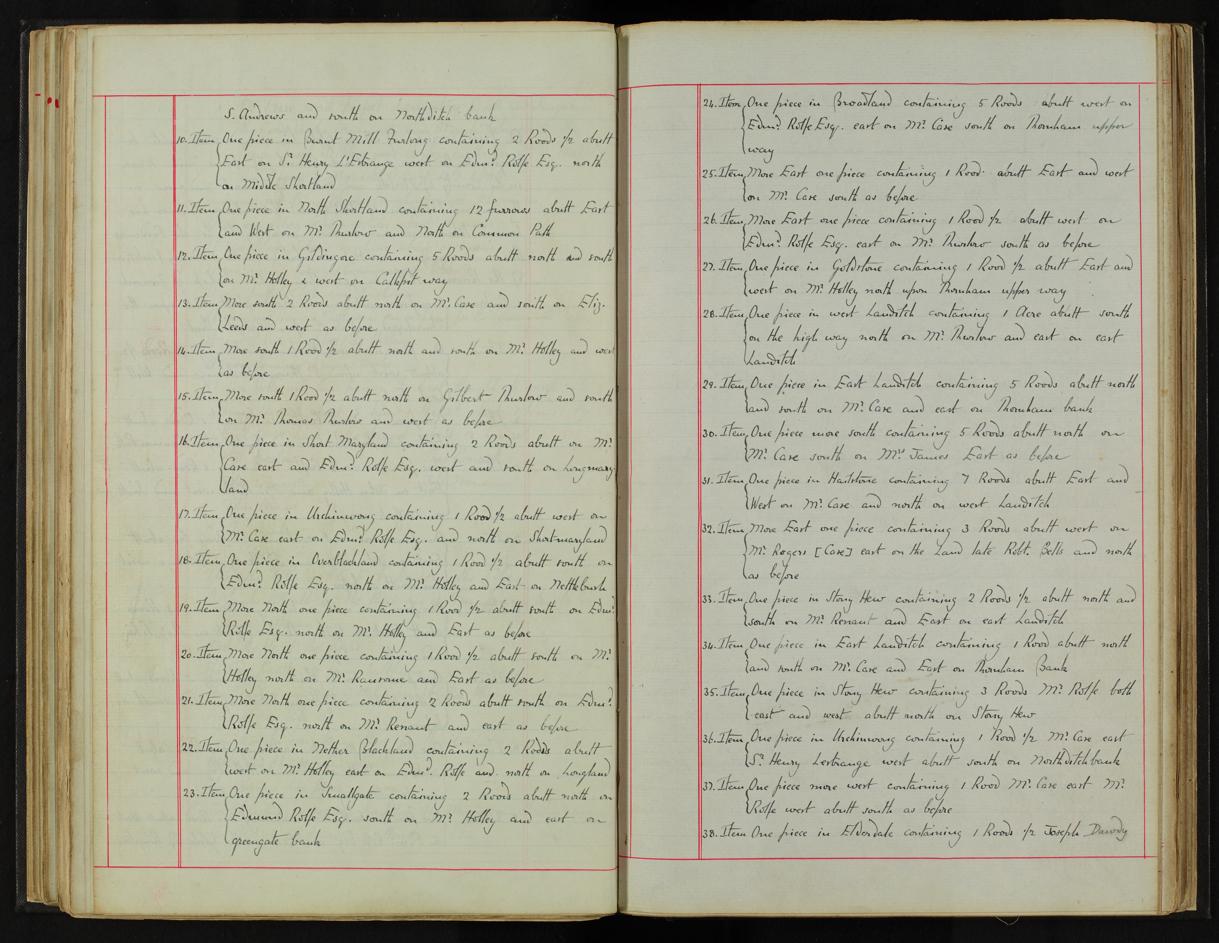 S. Andrews and south on Northditch bank
10. Item One piece in Burnt Mill Furlong containing 2 Roods 1/2 abutt
East on Sr. Henry L'Estrange west on Edmd. Rolfe Esq. north
on Middle Shortland
11. Item One piece in North Shortland containing 12 furrows abutt East
and West on Mr. Thurlow and North on Common Path
12. Item One piece in Goldingore containing 5 Roods abutt north and south
on Mr. Holley & west on Cathpit way
13. Item More south 2 Roods abutt north on Mr. Case and south on Eliz.
Leeds and west as before
14. Item More south 1 Rood 1/2 abutt north and south on Mr. Holley and west
as before
15. Item More south 1 Rood 1/2 abutt north on Gilbert Thurlow and south
on Mr. Thomas Thurlow and west as before
16. Item One piece in Short Maryland containing 2 Roods abutt on Mr.
Case east and Edmd. Rolfe Esq. west and south on Longmary
land
17. Item One piece in Urchinwong containing 1 Rood 1/2 abutt west on
Mr. Case east on Edmd. Rolfe Esq. and north on Shortmaryland
18. Item One piece in Overblackland containing 1 Rood 1/2 abutt south on
Edmd. Rolfe Esq. north on Mr. Holley and East on Nettlebush
19. Item More North one piece containing 1 Rood 1/2 abutt south on Edmd.
Rolfe Esq. north on Mr. Holley and East as before
20. Item More North one piece containing 1 Rood 1/2 abutt south on Mr.
Holley north on Mr. Ransome and East as before
21. Item More North one piece containing 2 Roods abutt south on Edmd.
Rolfe Esq. north on Mr. Rennant and east as before
22. Item One piece in Nether Blackland containing 2 Roods abutt
west on Mr. Holley east on Edmd. Rolfe and north on Longland
23. Item One piece in Smallgate containing 2 Roods abutt north on
Edmund Rolfe Esq. south on Mr. Holley and east on
greengate bank
24. Item One piece in Broadland containing 5 Roods abutt west on
Edmd. Rolfe Esq. east on Mr. Case south on Thornham upper
way
25. Item More East one piece containing 1 Rood abutt East and west
on Mr. Case south as before
26. Item More East one piece containing 1 Rood 1/2 abutt west on
Edmd. Rolfe Esq. east on Mr. Thurlow south as before
27. Item One piece in Goldstone containing 1 Rood 1/2 abutt East and
west on Mr. Holley north upon Thornham upper way
28. Item One piece in west Landitch containing 1 Acre abutt south
on the high way north on Mr. Thurlow and east on east
Landitch
29. Item One piece in East Landitch containing 5 Roods abutt north
and south on Mr. Case and east on Thornham bank
30. Item One piece more south containing 5 Roods abutt north on
Mr. Case south on Mrs. James East as before
31. Item One piece in Hailstone containing 7 Roods abutt East and
West on Mr. Case and north on west Landitch
32. Item More East one piece containing 3 Roods abutt west on
Mr. Rogers [Case] east on the Land late Robt. Betts and north
as before
33. Item One piece in Stony Hew containing 2 Roods 1/2 abutt north and
south on Mr. Rennant and East on east Landitch
34. Item One piece in East Landitch containing 1 Rood abutt north
and south on Mr. Case and East on Thornham Bank
35. Item One piece in Stony Hew containing 3 Roods Mr. Rolfe both
east and west abutt north on Stony Hew
36. Item One piece in Urchinwong containing 1 Rood 1/2 Mr. Case east
Sr. Henry Lestrange west abutt south on Northditchbank
37. Item One piece more west containing 1 Rood Mr. Case east Mr.
Rolfe west abutt south as before
38. Item One piece in Elderdale containing 1 Roods 1/2 Joseph Dawdy